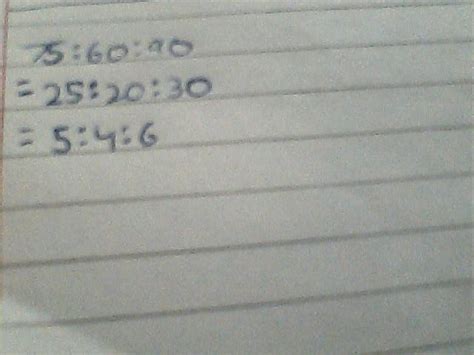 75:60:90
= 25:20:30
= 5:4:6